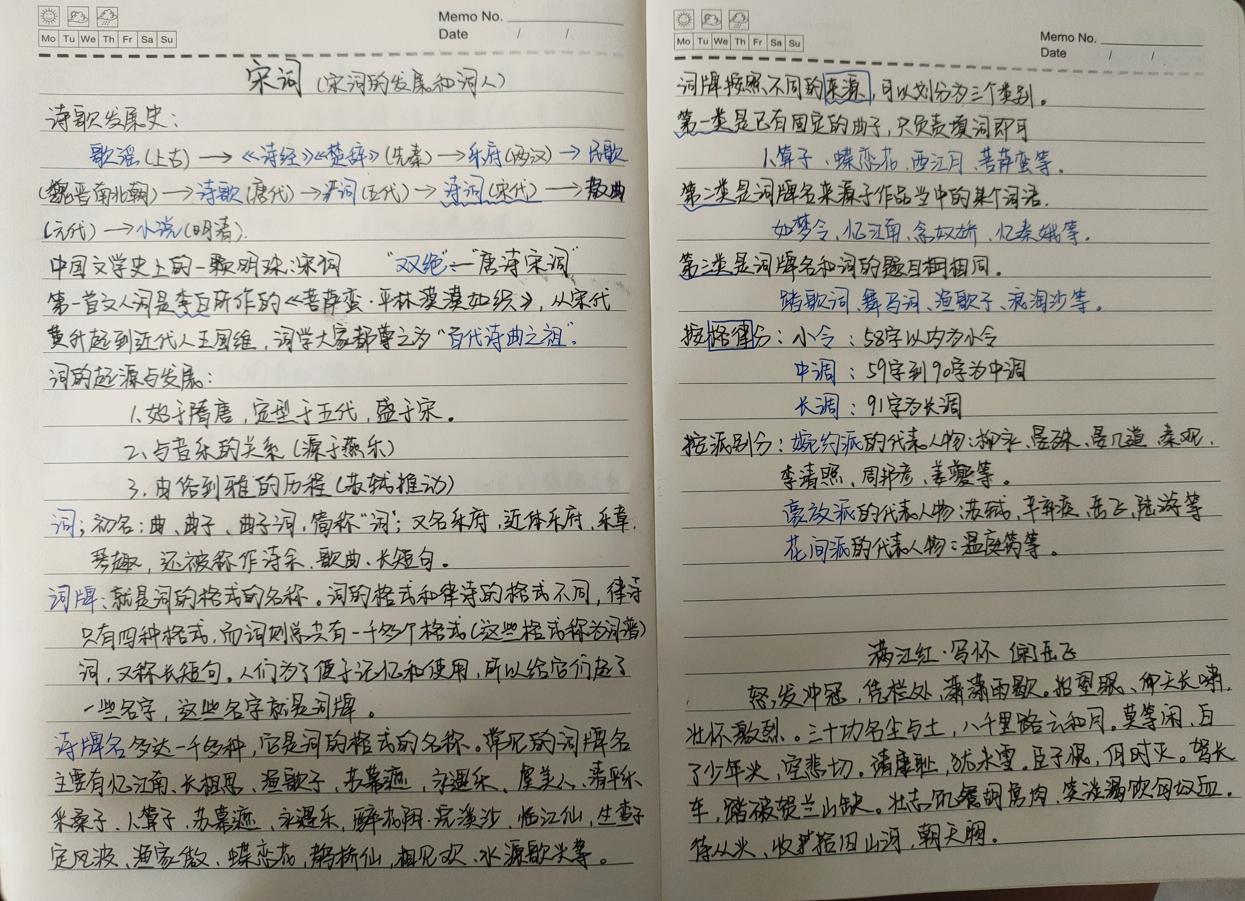 Memo No.
Mo Tu We Th Fr Sa Su
Date / /
宋词(宋词的发展和词人)
诗歌发展史:
歌谣(上古)→《诗经》《楚辞》(先秦)→乐府(两汉)→民歌
(魏晋南北朝)→诗歌(唐代)→词(五代)→诗词(宋代)→散曲
(元代)→小说(明清).
中国文学史上的一颗明珠:宋词 "双绝"—"唐诗宋词"
第一首文人词是李白所作的《菩萨蛮·平林漠漠如织》,从宋代
黄升起到近代人王国维,词学大家都尊之为"百代诗曲之祖".
词的起源与发展:
1.始于隋唐,定型于五代,盛于宋。
2、与音乐的关系(源于燕乐)
3、由俗到雅的历程(苏轼推动)
词;初名:曲、曲子、曲子词,简称"词";又名乐府,近体乐府,乐章,
琴趣,还被称作诗余、歌曲、长短句。
词牌:就是词的格式的名称。词的格式和律诗的格式不同,律诗
只有四种格式,而词则总共有一千多个格式(这些格式称为词谱)
词,又称长短句。人们为了便于记忆和使用,所以给它们起了
一些名字,这些名字就是词牌。
诗牌名多达一千多种,它是词的格式的名称。常见的词牌名
主要有忆江南、长相思、渔歌子、苏幕遮、永遇乐、虞美人、清平乐
采桑子、卜算子、苏幕遮、永遇乐,醉花阴、浣溪沙、临江仙,生查子
定风波、渔家傲、蝶恋花,鹊桥仙,相见欢、水源歌头等。
Memo No.
Mo Tu We Th Fr Sa Su
Date / /
词牌按照不同的来源,可以划分为三个类别。
第一类是已有固定的曲子,只负责填词即可
卜算子、蝶恋花,西江月、菩萨蛮等。
第二类是词牌名来源于作品当中的某个词语.
如梦令,忆江南,念奴娇、忆秦娥等。
第三类是词牌名和词的题目相相同。
踏歌词、舞马词、渔歌子、浪淘沙等。
按格律分:小令:58字以内为小令
中调:59字到90字为中调
长调:91字为长调
按派别分:婉约派的代表人物:柳永、晏殊、晏几道、秦观,
李清照、周邦彦、姜夔等。
豪放派的代表人物:苏轼、辛弃疾、岳飞,陆游等
花间派的代表人物:温庭筠等。
满江红·写怀 岳飞
怒发冲冠,凭栏处,潇潇雨歇。抬望眼、仰天长啸,
壮怀激烈。三十功名尘与土,八千里路云和月。莫等闲、白
了少年头,空悲切。靖康耻,犹未雪。臣子恨,何时灭。驾长
车,踏破贺兰山缺。壮志饥餐胡虏肉,笑谈渴饮匈奴血。
待从头、收拾旧山河,朝天阙。